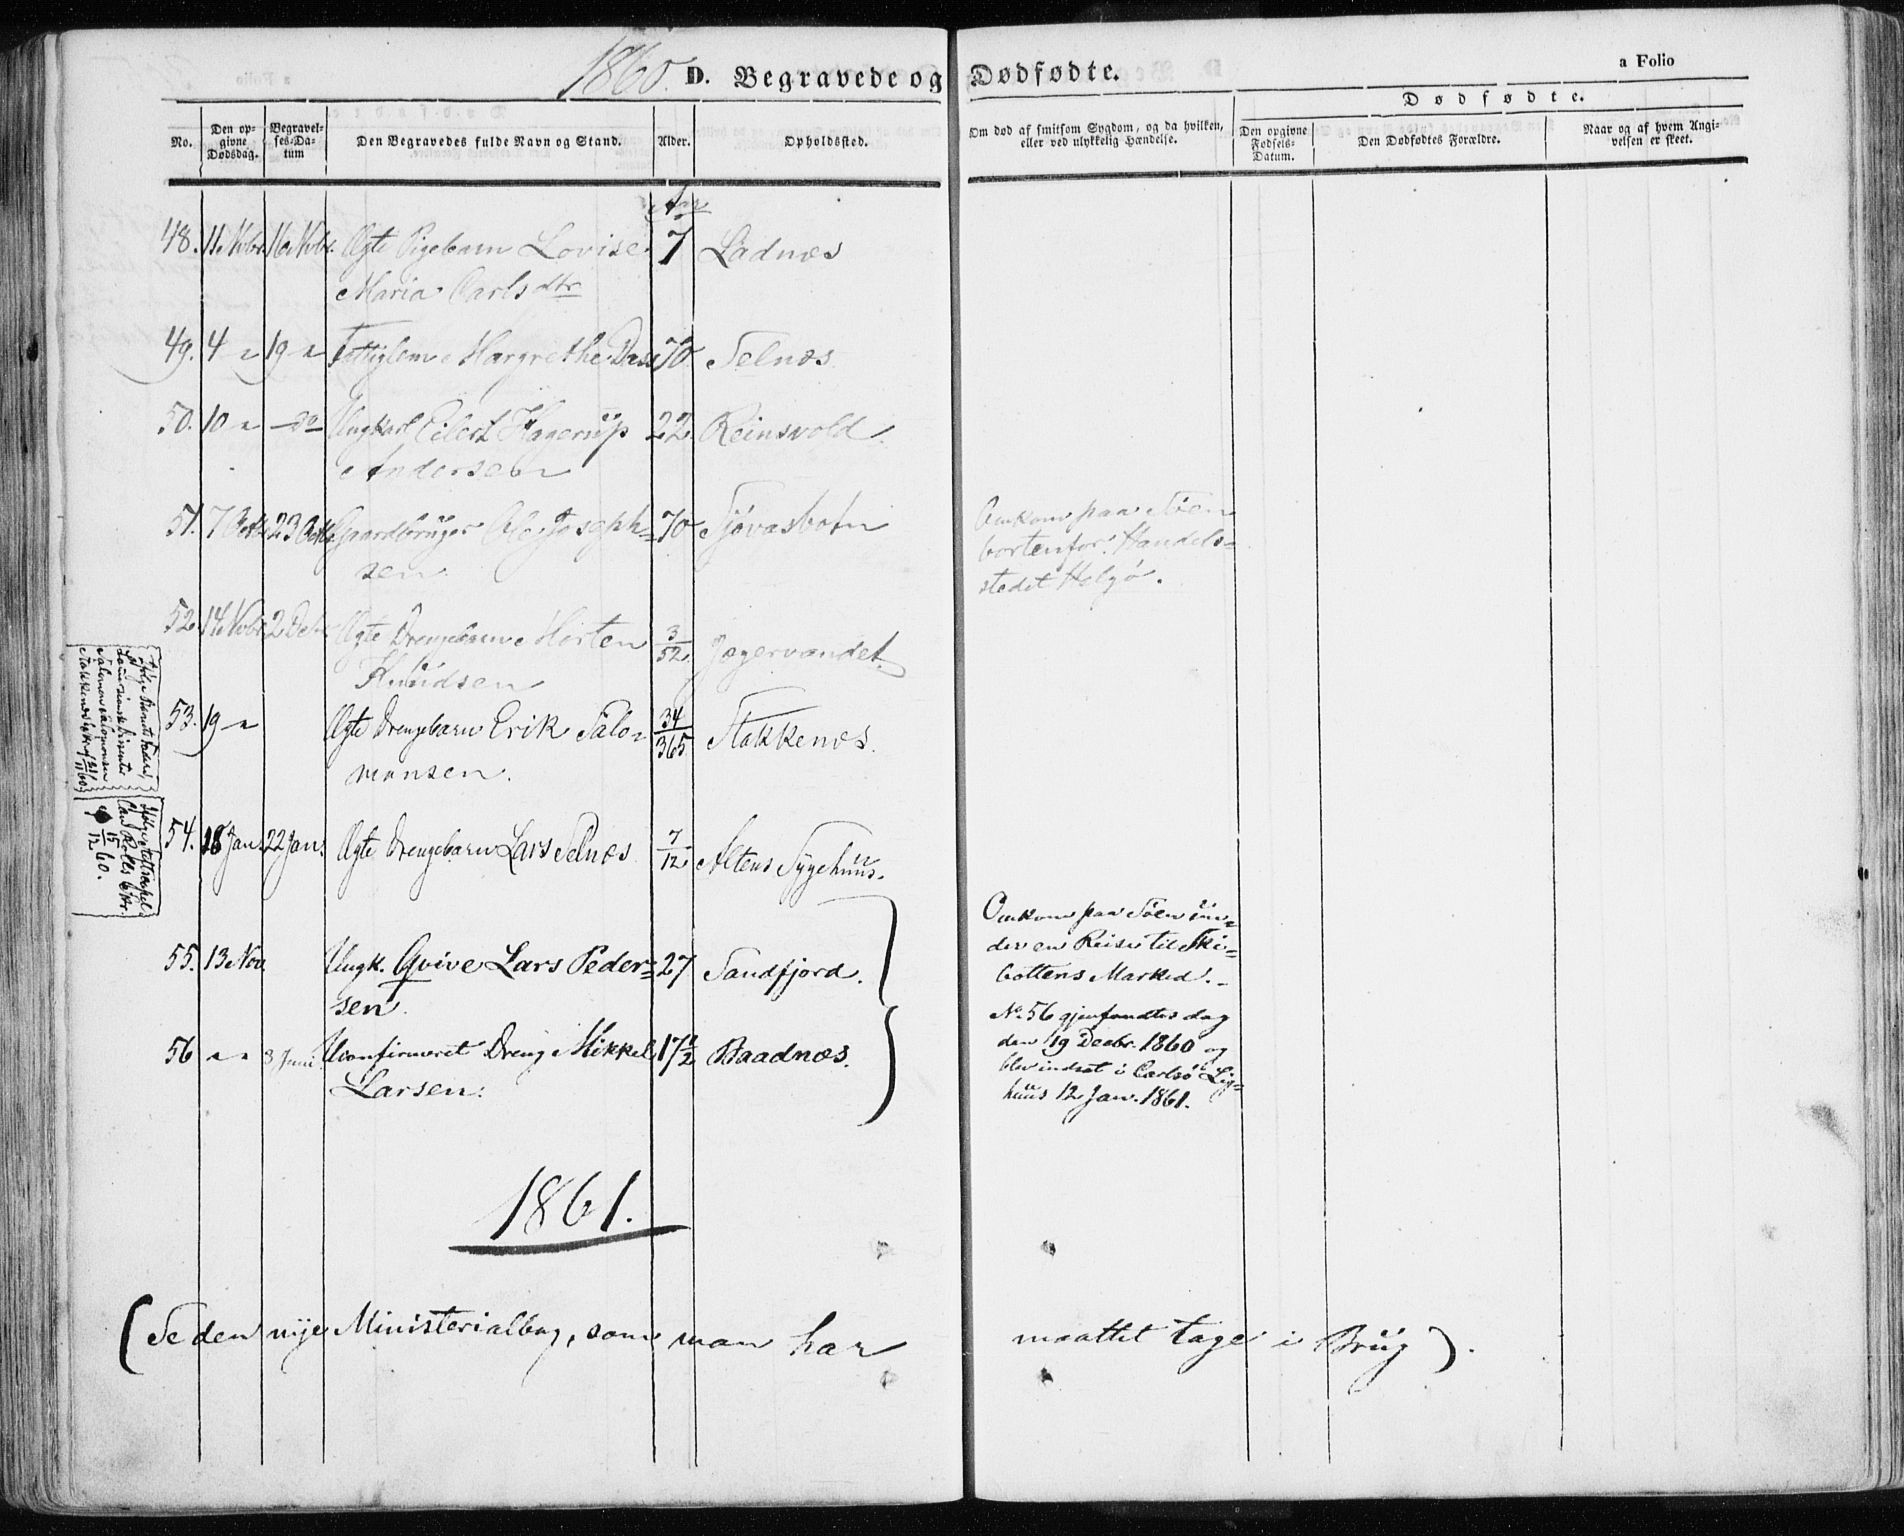 1860. D. Begravede og Dødfødte.
a Folio
No.
Den op-
givne
Dødsdag.
Begravel-
ses-Da-
tum
Den Begravedes fulde Navn og Stand.
Alder.
Opholdssted.
Om død af smitsom Sygdom, og da hvilken,
eller ved ulykkelig Hændelse.
Dødfødte.
Den opgivne
Fødsels-
Datum.
Den Dødfødtes Forældre.
Naar og af hvem Angi-
velsen er skeet.
Aar
48. 11 Novbr 16 Novbr. Ægte Pigebarn Lovise 7 Ladnæs
Maria Carlsdtr
49. 4 " 19 " Fattiglem Margrethe Dass 70 Selnæs
50. 10 " do Ungkarl Eilert Hagerup 22 Reinsvold
Andersen
51. 7 Octb 23 Octb Gaardbruger Ole Joseph= 70 Sjøvasbotn
sen
Omkom paa Søen
bortenfor Handels=
stedet Helgø.
52. 14 Novbr 2 Debr Ægte Drengebarn Morten 3/52 Jægervandet
Knudsen
53. 19 " Ægte Drengebarn Erik Salo= 34/365 Stakkenæs.
monsen.
54. 18 Jan. 22 Jan. Ægte Drengebarn Lars Selnæs 7/12 Altens Sygehuus.
55. 13 Nov Ungk. Qvive Lars Peder= 27 Sandfjord.
sen.
Omkom paa Søen un=
der en Reise til Ski=
bottens Marked. -
56 " " 3 Juni. Uconfirmeret Dreng Mikkel 17 1/2 Baadnæs.
Larsen.
No. 56 gjenfandtes dog
den 19 Decbr. 1860 og
blev indsat i Carlsø Lig=
huus 12 Jan. 1861.
1861.
(Se den nye Ministerialbog, som man har maattet tage i Brug).